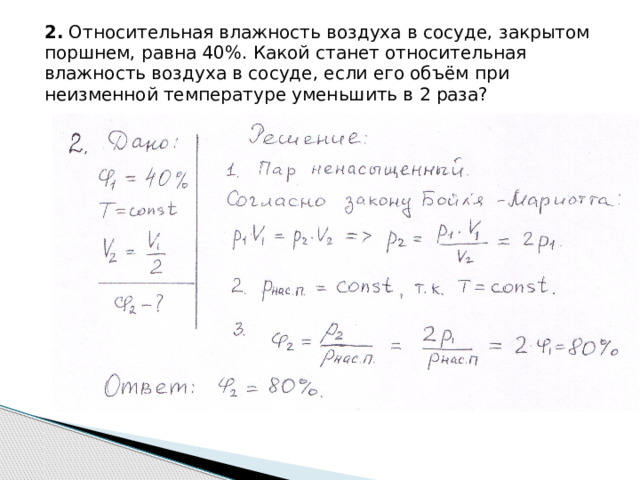 2. Относительная влажность воздуха в сосуде, закрытом
поршнем, равна 40%. Какой станет относительная
влажность воздуха в сосуде, если его объём при
неизменной температуре уменьшить в 2 раза?
2. Дано:
φ₁ = 40%
T = const
V₂ = V₁/2
φ₂ – ?
Решение:
1. Пар ненасыщенный.
Согласно закону Бойля – Мариотта:
p₁·V₁ = p₂·V₂ => p₂ = p₁·V₁/V₂ = 2p₁.
2. pнас.п. = const, т.к. T = const.
3. φ₂ = p₂/pнас.п. = 2p₁/pнас.п = 2·φ₁ = 80%
Ответ: φ₂ = 80%.